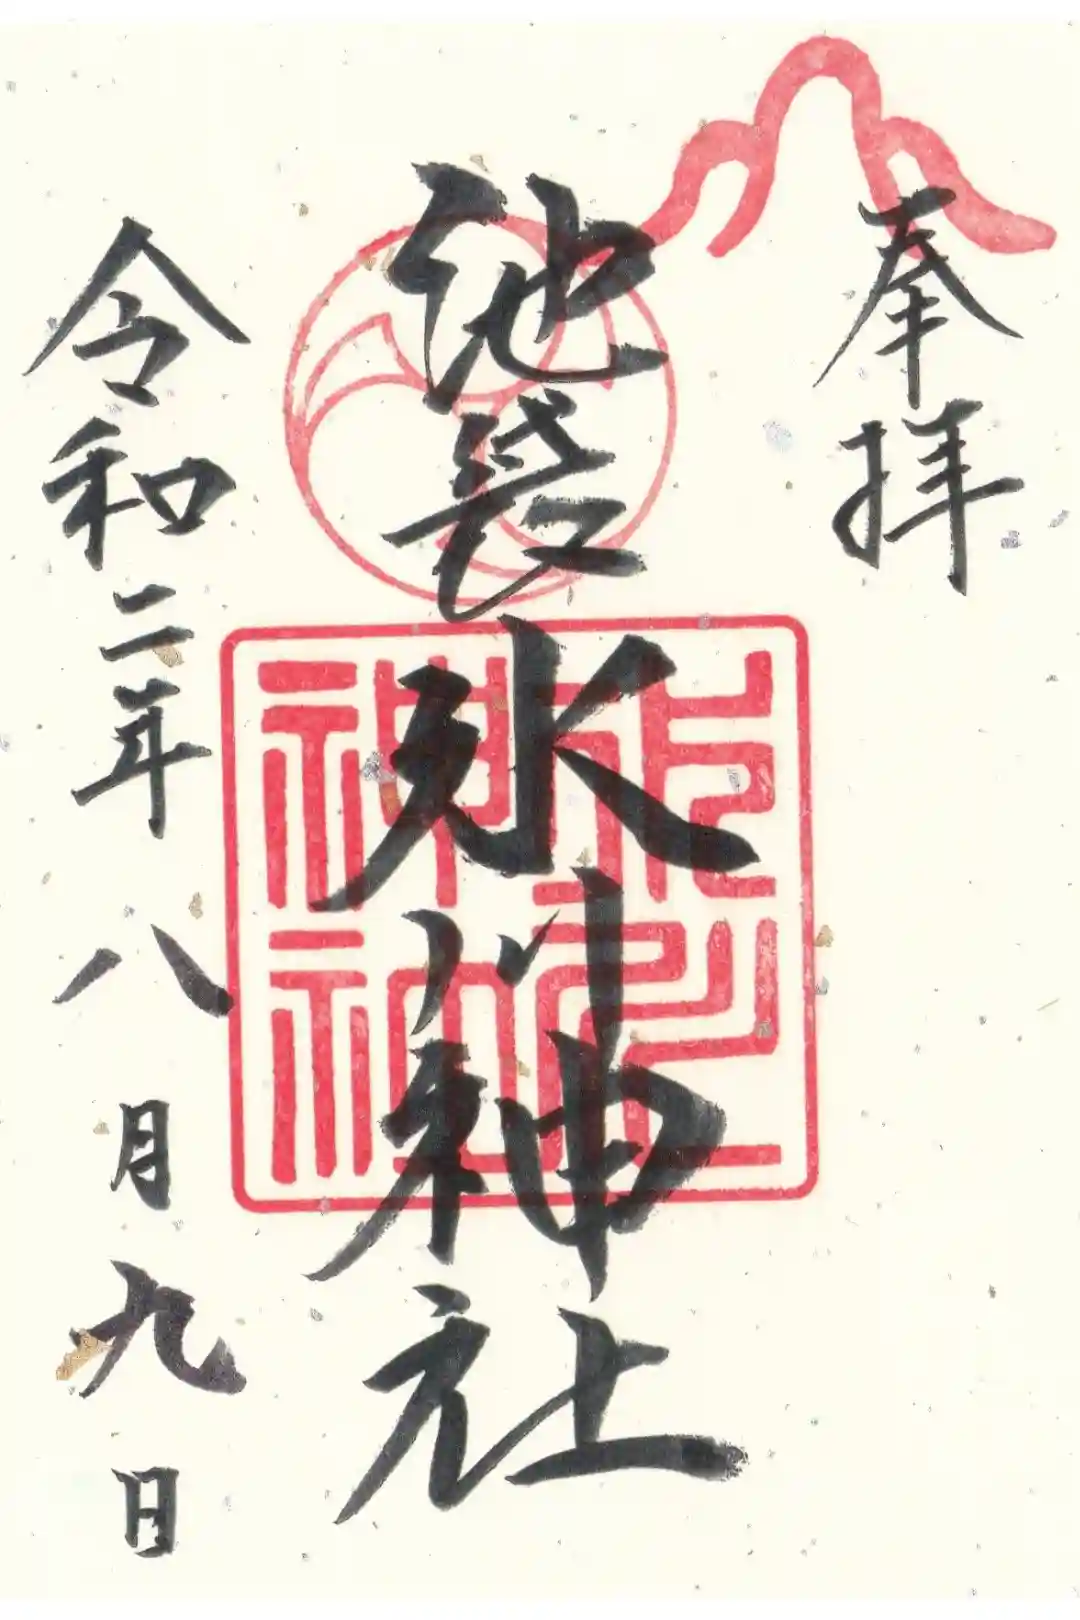 奉拝
池袋氷川神社
令和二年八月九日
氷川神社